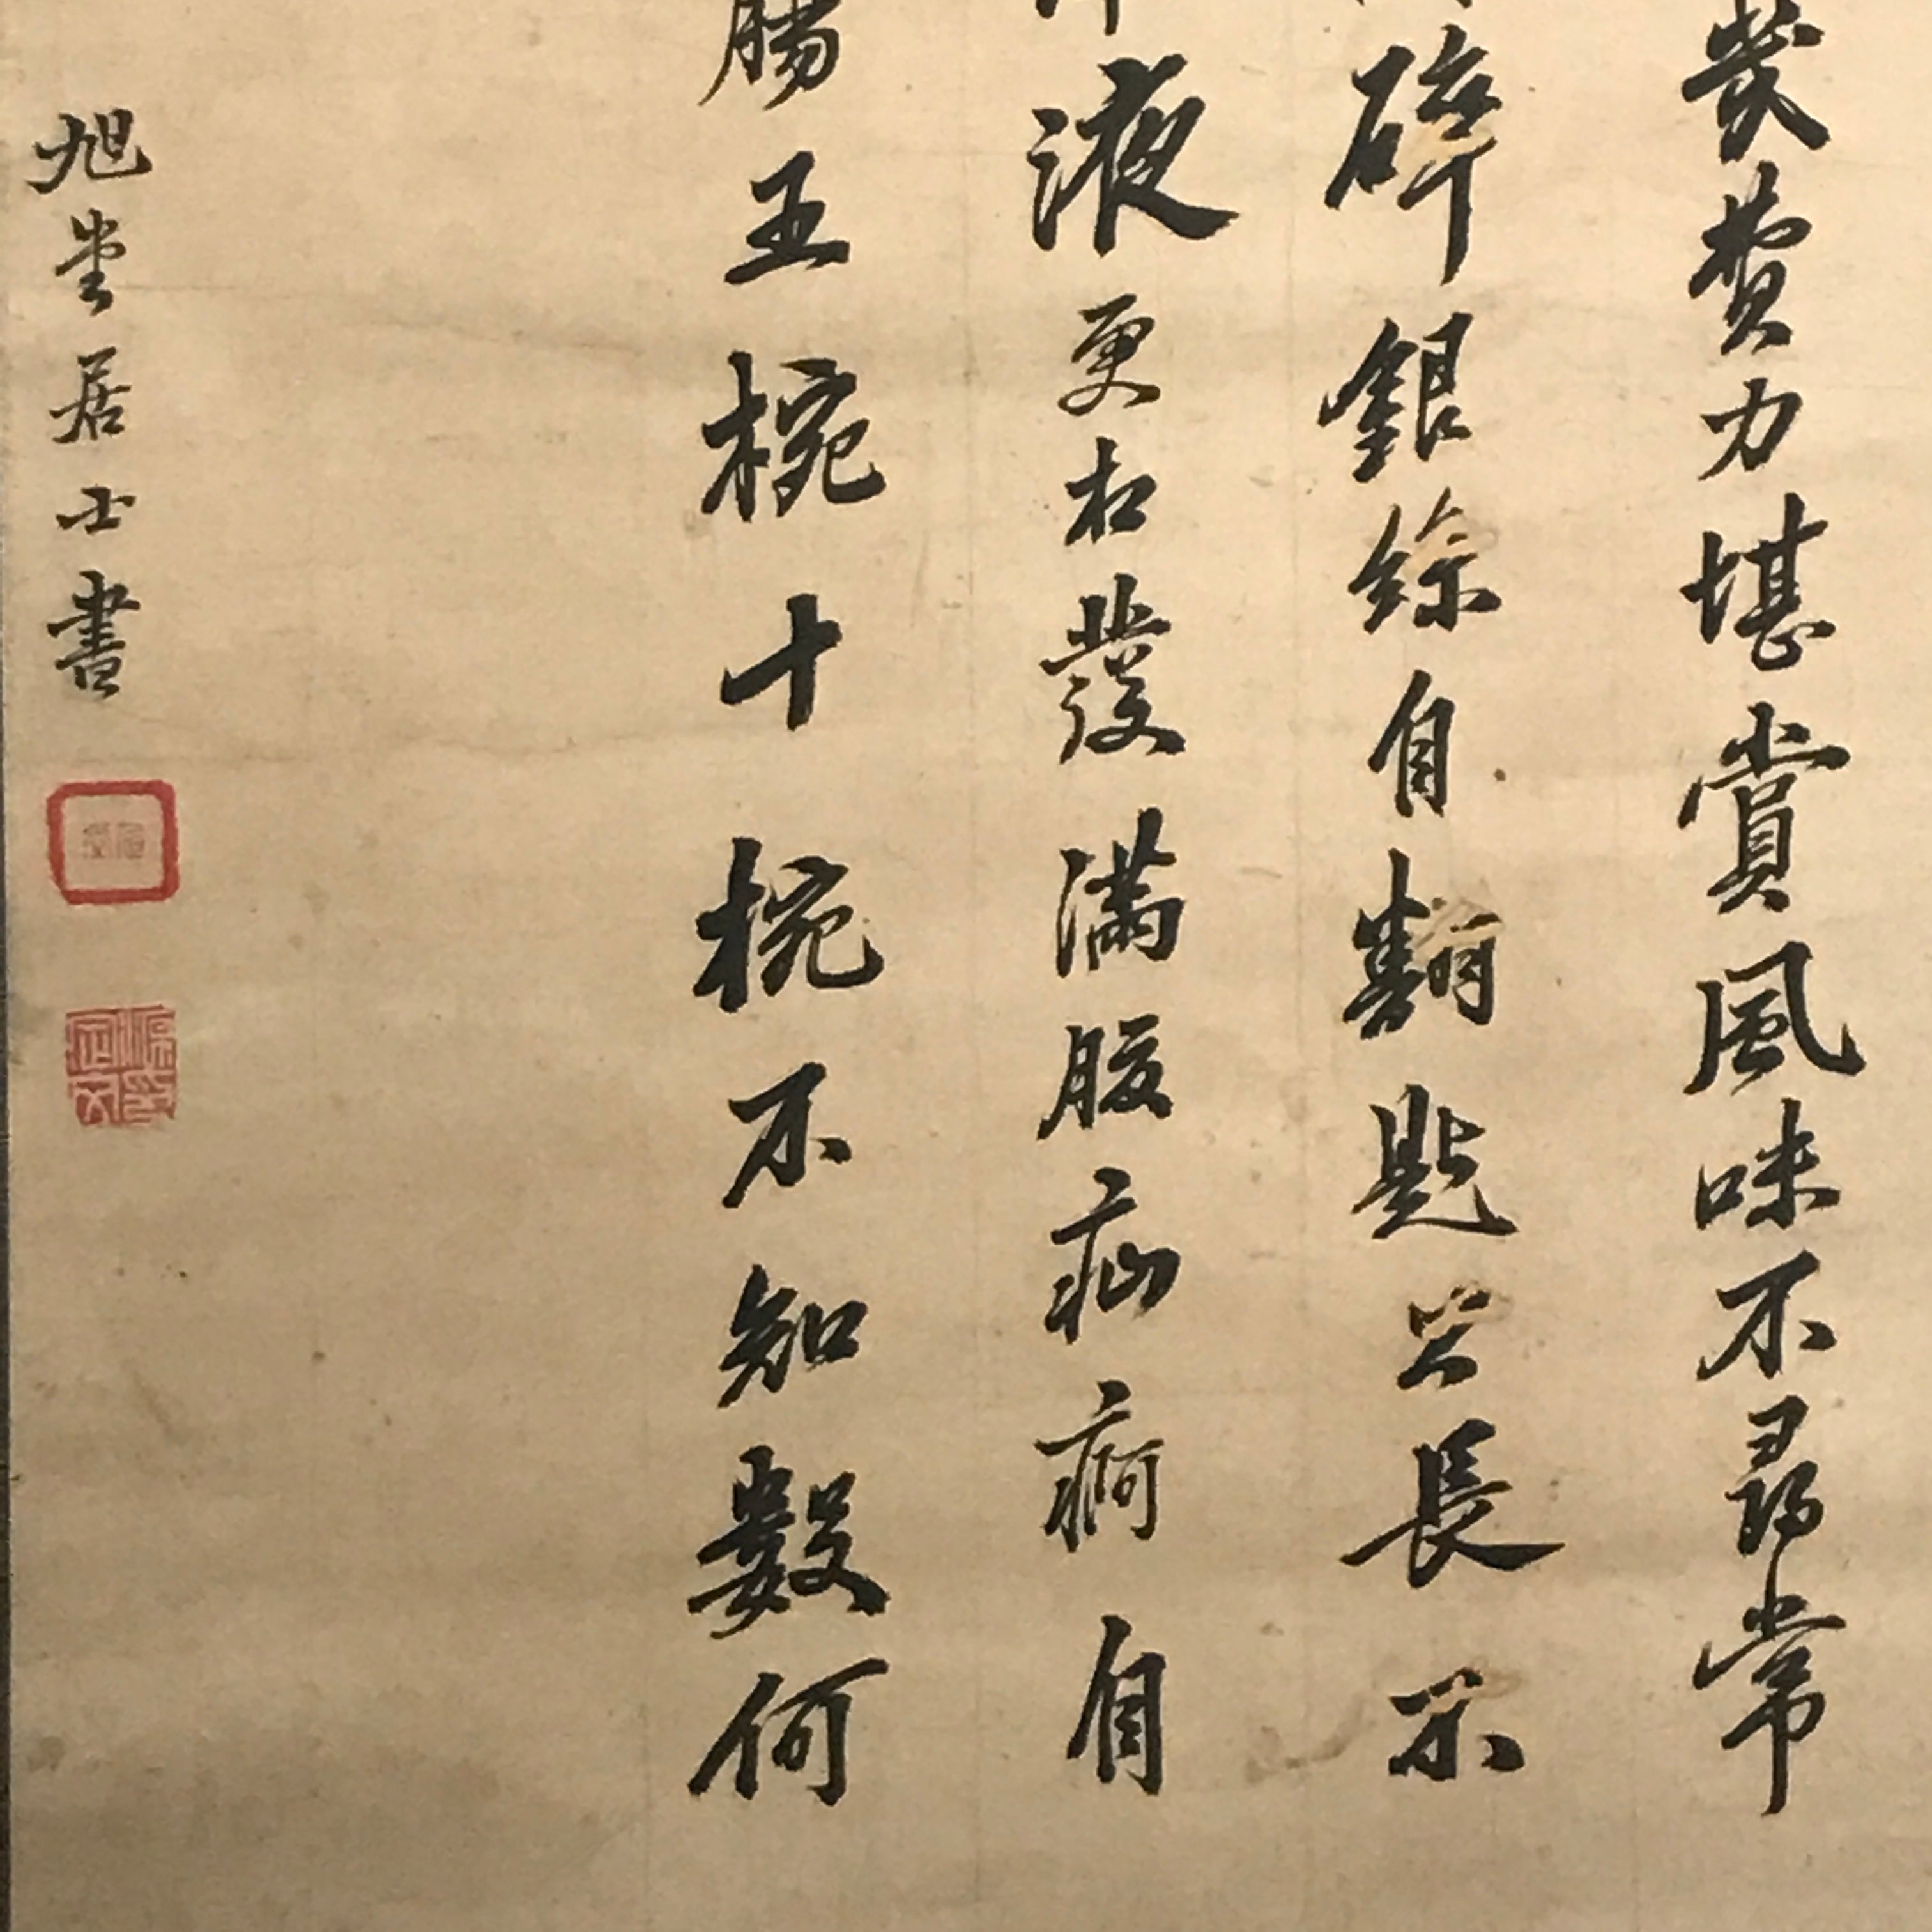 幾費力堪賞風味不尋常
碎銀綜自翻匙長不
液更發滿腹疝痾自
腸五椀十椀不知數何
旭堂居士書